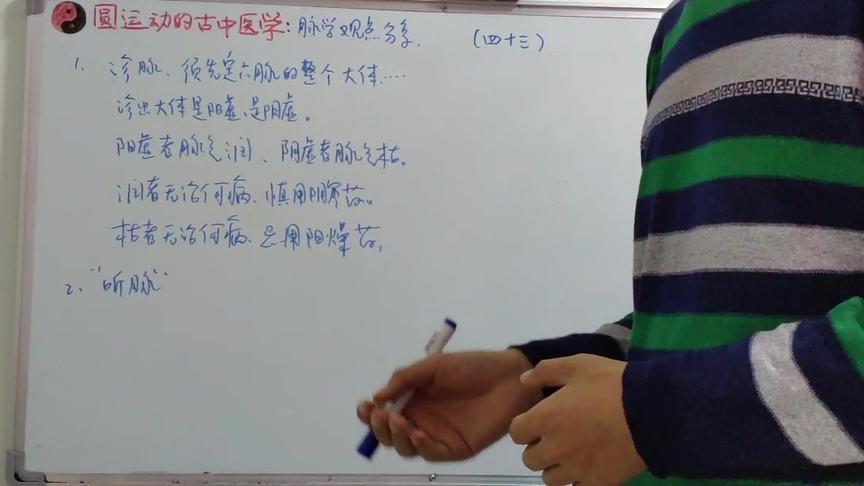 圆运动的古中医学:脉学观点分享. (四十三)
1. 诊脉、须先定六脉的整个大体.....
诊出大体是阳虚、是阴虚。
阳虚者脉气润、阴虚者脉气枯。
润者无论何病、慎用阴寒药。
枯者无论何病、忌用阳燥药,
2、"听脉"